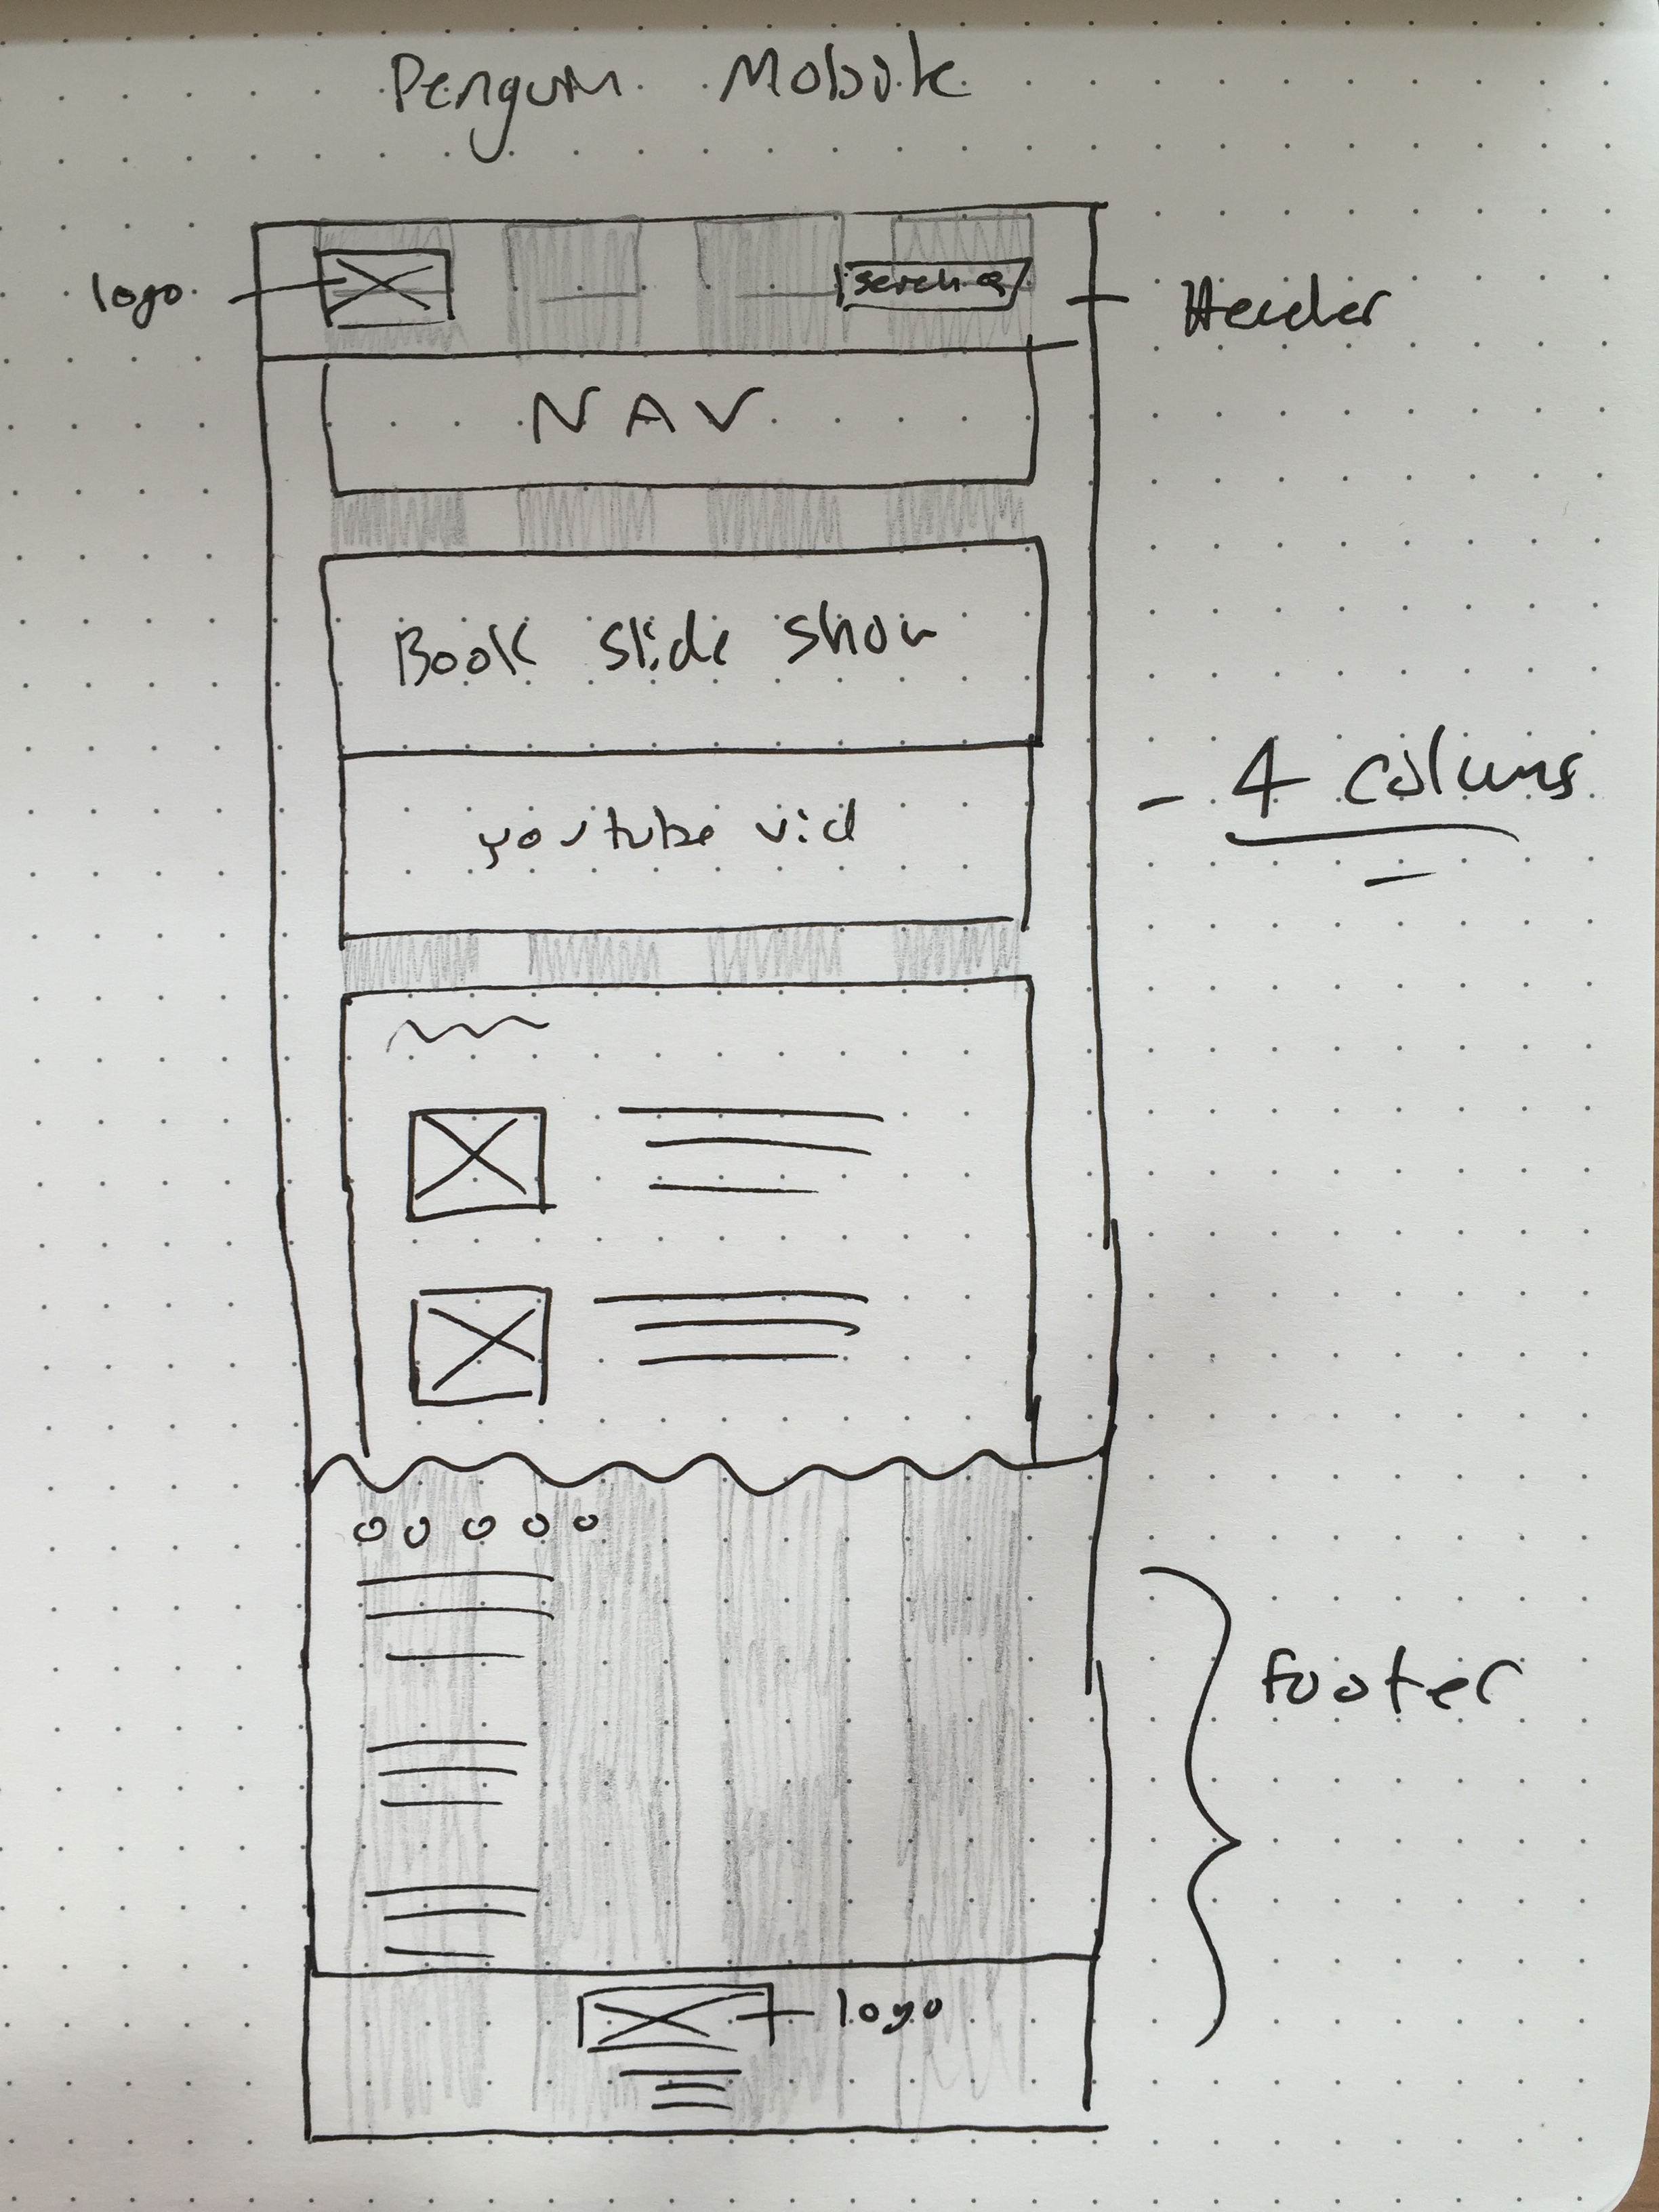 Penguin Mobile
logo
serch Q
Header
NAV
Book slide show
youtube vid
- 4 colums
footer
logo